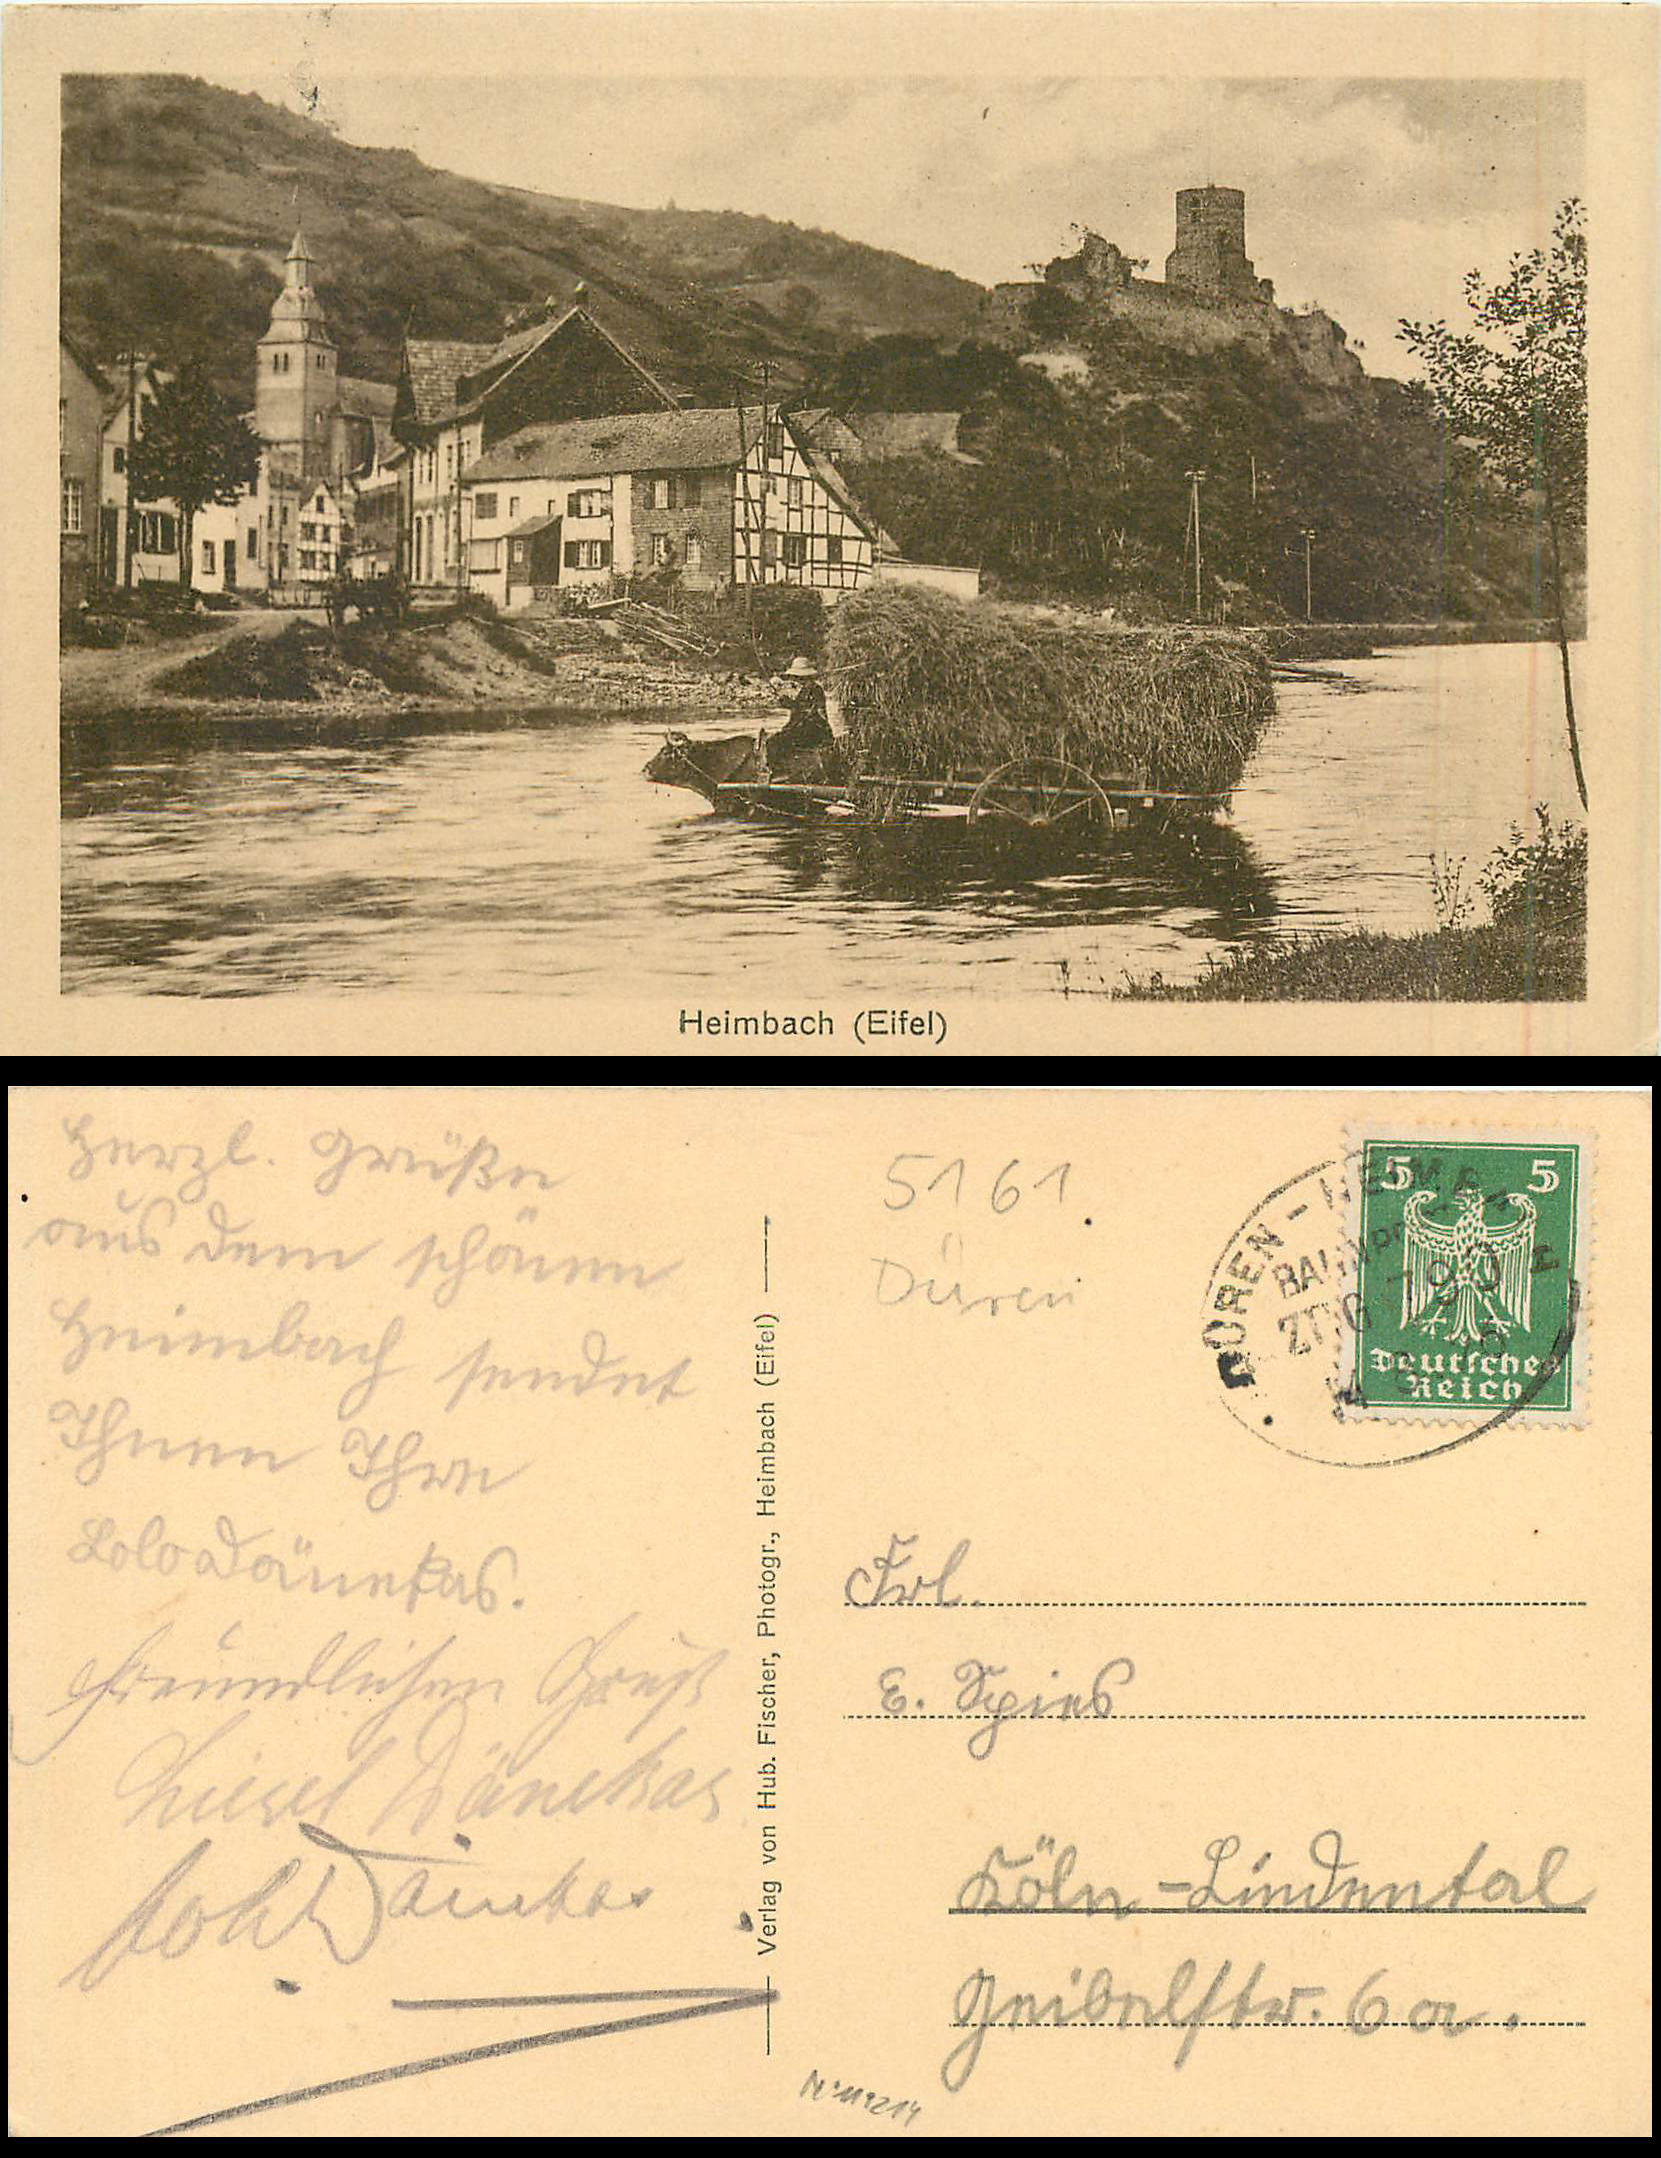 Heimbach (Eifel)
Herzl. Grüße
aus dem schönen
Heimbach sendet
Ihnen Ihre
Lolo Dänekas.
freundlichen Gruß
Liesel Dänekas
Dänekas
Verlag von Hub. Fischer, Photogr., Heimbach (Eifel)
5161
Düren
DÜREN - HEIMB
BAHNPOST
ZUG 790
5 5
Deutsches
Reich
Frl.
E. Spies
Köln-Lindental
Geibelstr. 6a.